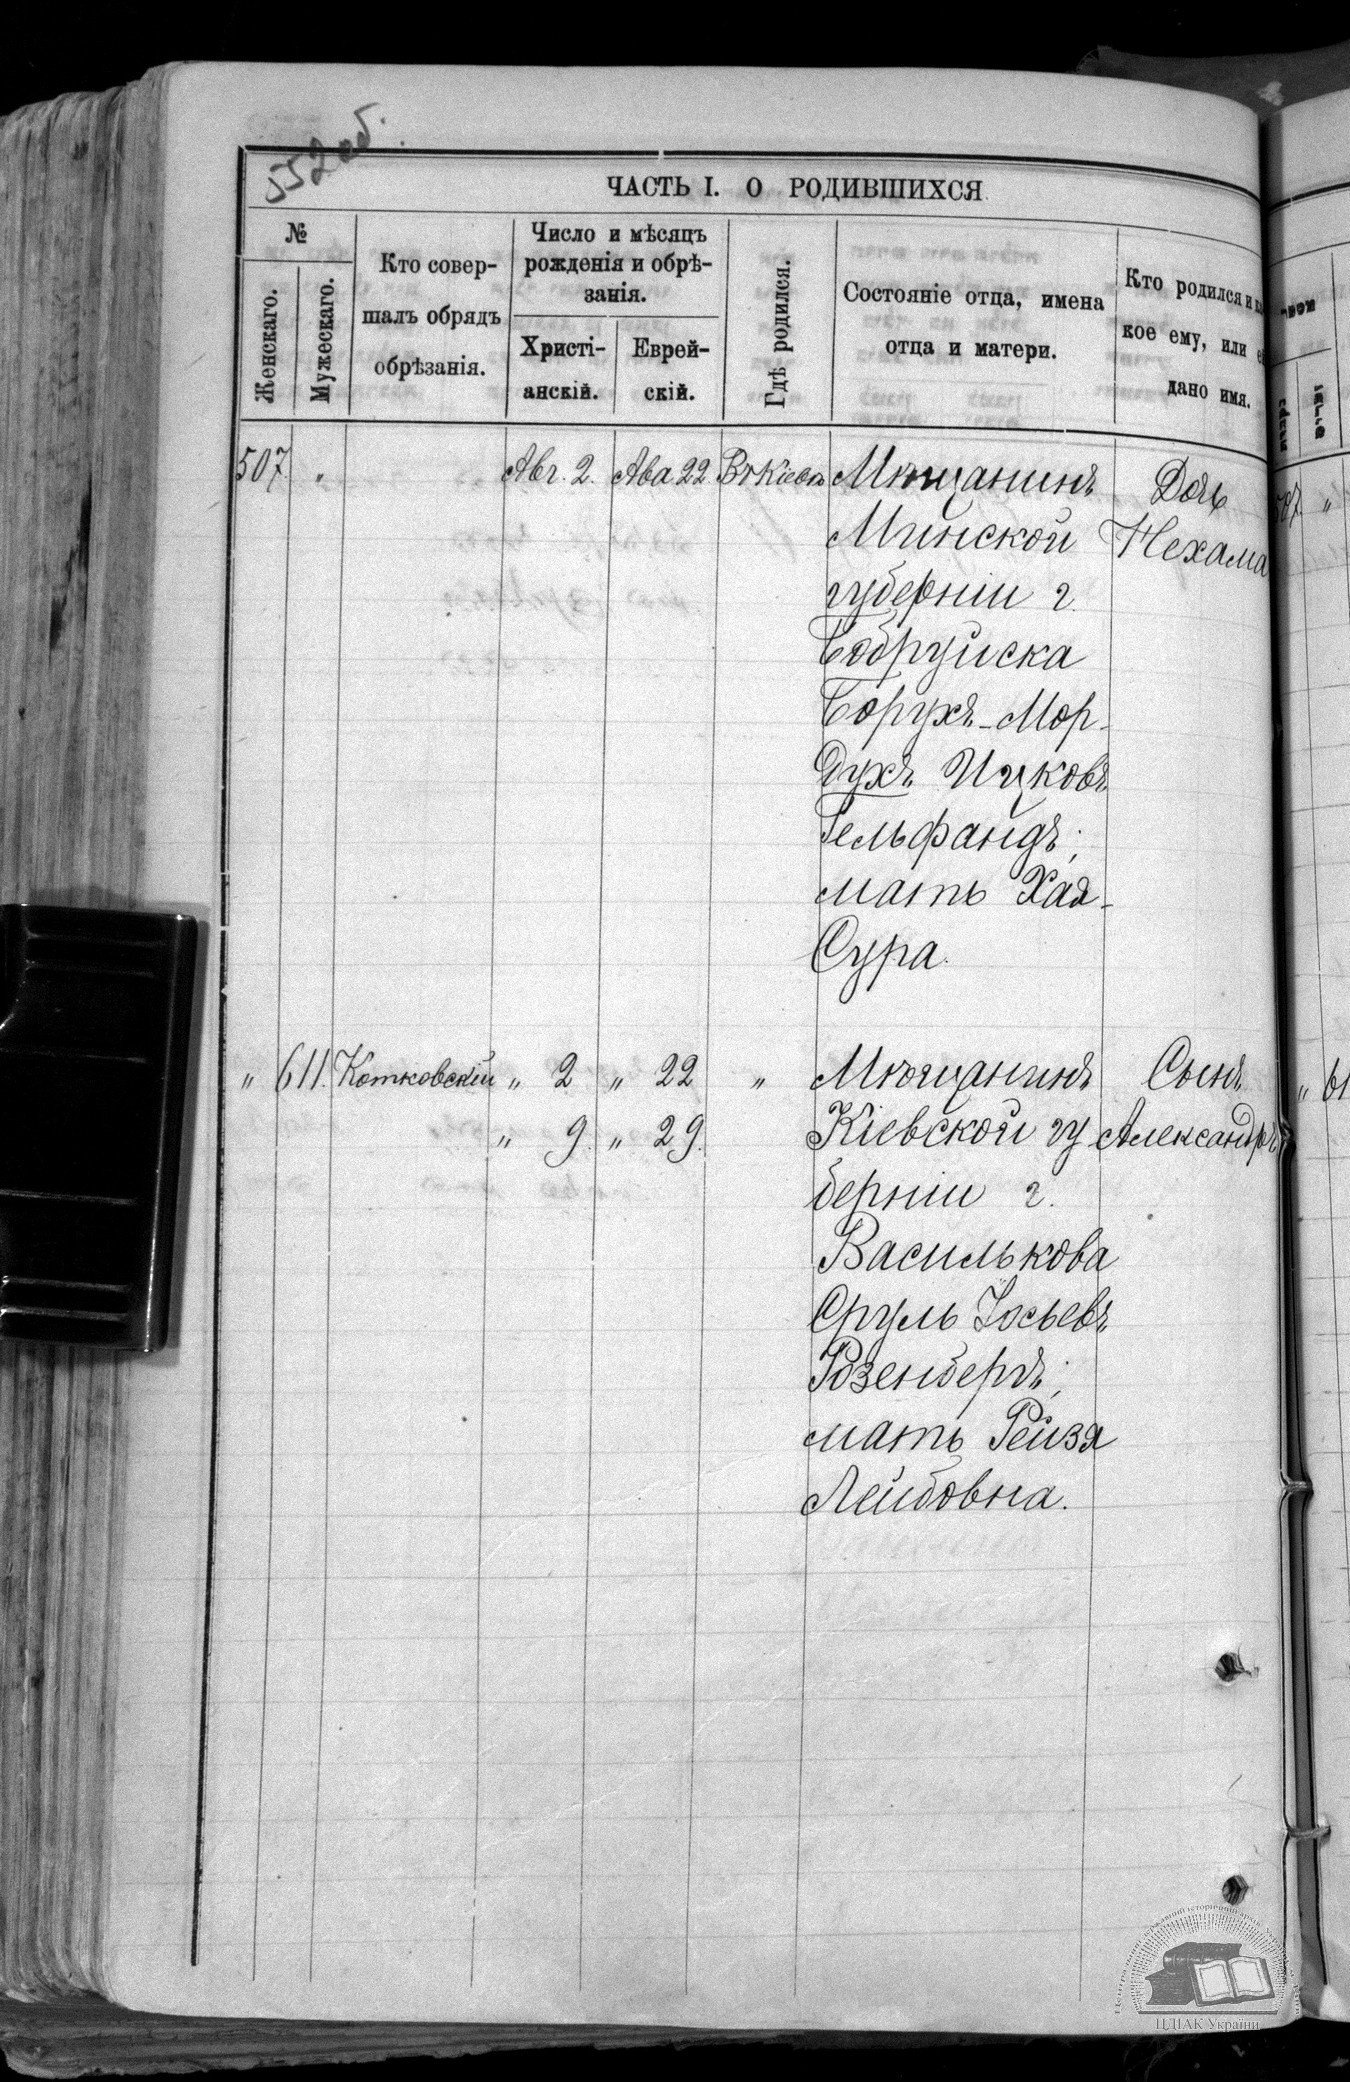 552 об.
ЧАСТЬ I. О РОДИВШИХСЯ
№
Женскаго.
Мужескаго.
Кто совер-
шалъ обрядъ
обрѣзанія.
Число и мѣсяцъ
рожденія и обрѣ-
занія.
Христі-
анскій.
Еврей-
скій.
Гдѣ родился.
Состояніе отца, имена
отца и матери.
Кто родился и ка
кое ему, или е
дано имя.
507. " Авг. 2. Ава 22 Въ Кіевѣ Мѣщанинъ Дочь
Минской Нехама
губерніи г.
Бобруйска
Борухъ-Мор-
духъ Ицковъ
Гельфандъ;
мать Хая-
Сура.
" 611. Котковскій " 2 " 22 " Мѣщанинъ Сынъ
" 9. " 29. Кіевской гу Александръ
берніи г.
Василькова
Сруль Іосьевъ
Розенбергъ;
мать Рейзя
Лейбовна.
507. "
" 61
ЦДІАК України